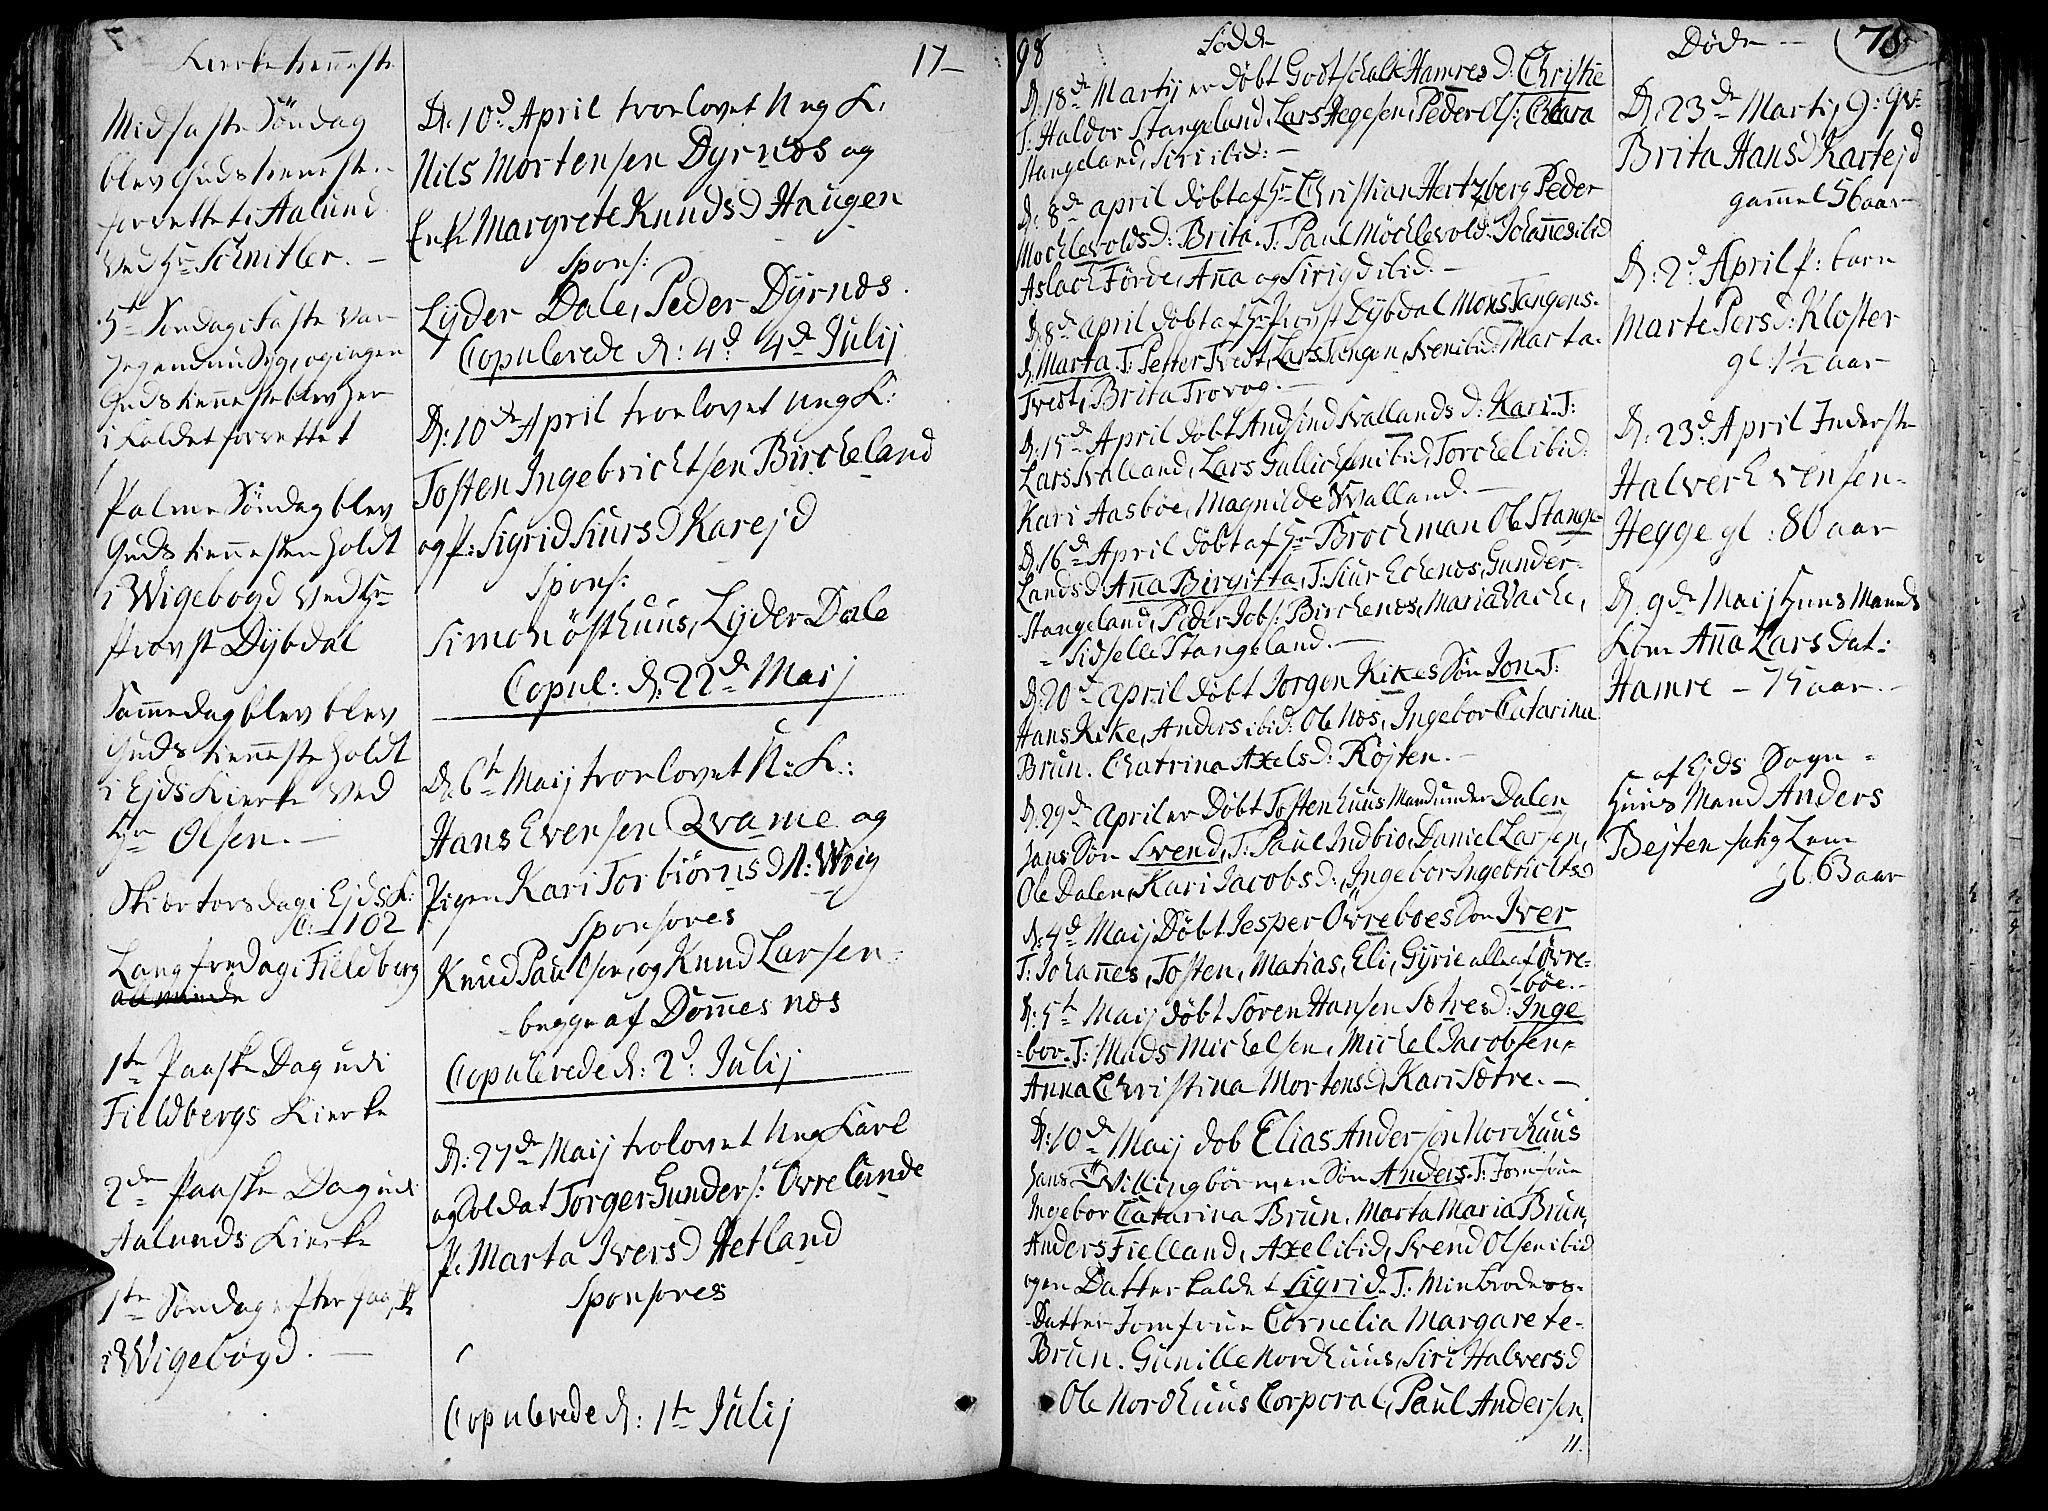 Kierke tienneste
Midfaste Söndag
blev Guds tienneste
forrettet i Aalund
ved Hr Schnitler. –
5te Söndag i Faste var
jeg endnu syg, og ingen
Guds tienneste blev her
i Kaldet forrettet
Palme Söndag blev
Guds tiennesten holdt
i Wigebögd ved Hr
Provst Dÿbdal
Samme dag blev blev
Guds tienneste holdt
i Ejds Kierke ved
Hr Olsen. –
Skiertorsdag i Ejds K:
C: 1102
Langfredag i Fieldberg
1te Paaske Dag udi
Fieldbergs Kierke
2den Paaske Dag udi
Aalunds Kierke
1te Söndag efter Paaske
i Wigebögd. –
17–
D: 10d April troelovet Ung K.
Nils Mortensen Dyrnæs og
Enke Margrete Knudsd Haugen
Spons:
Lyder Dale, Peder Dÿrnæs.
Copulerede d: 4d: 4de Julij
D: 10de April troelovet Ung K:
Tosten Ingebrichtsen Bircheland
og P: Sigrid Siursd Karejd
Spons:
Simon Østhuus, Lyder Dale
Copul: d: 22de Maij
D: 6te Maij troelovet U: K:
Hans Evensen Qvame og
Pigen Kari Torbiörnsd N: Wrig
Sponsores
Knud Paulsen, og Knud Larsen
begge af Dommesnæs
Copulerede d: 2d: Julij
D: 27de Maij trolovet Ung Karl
og Soldat Torger Gunders: Øvrelunde
P. Marta Iversd Hetland
Sponsores
Copulerede d: 1te Julij
98
Födde
D: 18de Martij er döbt Godtschalk Hamres d: Christie
T: Haldor Stangeland, Lars Hegesen, Peder Ols:, Clara
Stangeland, Siri ibid: –
D: 8de april döbt af Hr Christian Hertzberg Peder
Mochlevolds d: Brita. T: Paul Möchlevold: Johannes ibid
Aslach Förde, Anna og Sirigd ibid. –
D: 8de april döbt af Hr Provst Dÿbdal Mons Tangens
d: Marta. T: Petter Tvedt, Lars Tangen, Sven ibid: Marta
Tvedt, Brita Trovog. –
D: 15de April döbt Andsind Svallands d: Kari. T:
Lars Svalland, Lars Gullichsen ibid, Torchel ibid.
Kari Aasböe, Magnilde Svalland. –
D: 16de April döbt af Hr Brochman Ole Stange-
lands d Anna Birgitta, T: Siur Echenæs, Gunder
Stangeland, Peder Jobs: Birchenæs, Maria Vache,
Sidselle Stangeland. –
D: 20de april döbt Jörgen Kikes Sön Jon T:
Hans Kike, Anders ibid: Ole Næs, Ingebor Catarina
Brun. Chatrina Axelsd: Röjten. –
D: 29de april er döbt Tosten huusmand under Dalen
hans Sön Svend, T: Paul Indbio, Daniel Larsen,
Ole Dalen, Kari Jacobsd:, Ingebor Ingebrichtsd
D: 4de Maij döbt Jesper Øvreboes Sön Iver
T: Johannes, Tosten, Matias, Eli, Gyrie alle af Øvre-
-böe. –
D: 5te Maij döbt Sören Hansen Sætres d: Inge
-bor. T: Mads Michelsen, Michel Jacobsen
Anna Christina Mortensd, Kari Sætre. –
D: 10de Maij döb Elias Andersön Nordhuus
hans 2 Tvillingbörn, en Sön Anders. T: Jomfrue
Ingebor Catarina Brun, Marta Maria Brun,
Anders Fielland, Axel ibid, Svend Olsen ibid
og en Datter kaldet Sigrid. T: Min broders
Datter Jomfrue Cornelia Margarete
Brun. Gunille Nordhuus, Siri Halversd
Ole Nordhuus Corporal, Paul Andersen,
11.
Döde –
78
D: 23de Martij g: qv:
Brita Hansd Kartejd
gammel 56 aar
D: 2d April P: barn
Marte Persd: Kloster
gl: 1½ aar
D: 23d: April Inderste
Halver Evensen
Hegge gl: 80 aar
D. 9de Maij Huus Mands
Kone Anna Lars Dat:
Hamre – 75 aar. –
af Ejds Sogn
Huus Mand Anders
Bejten
gl. 63 aar